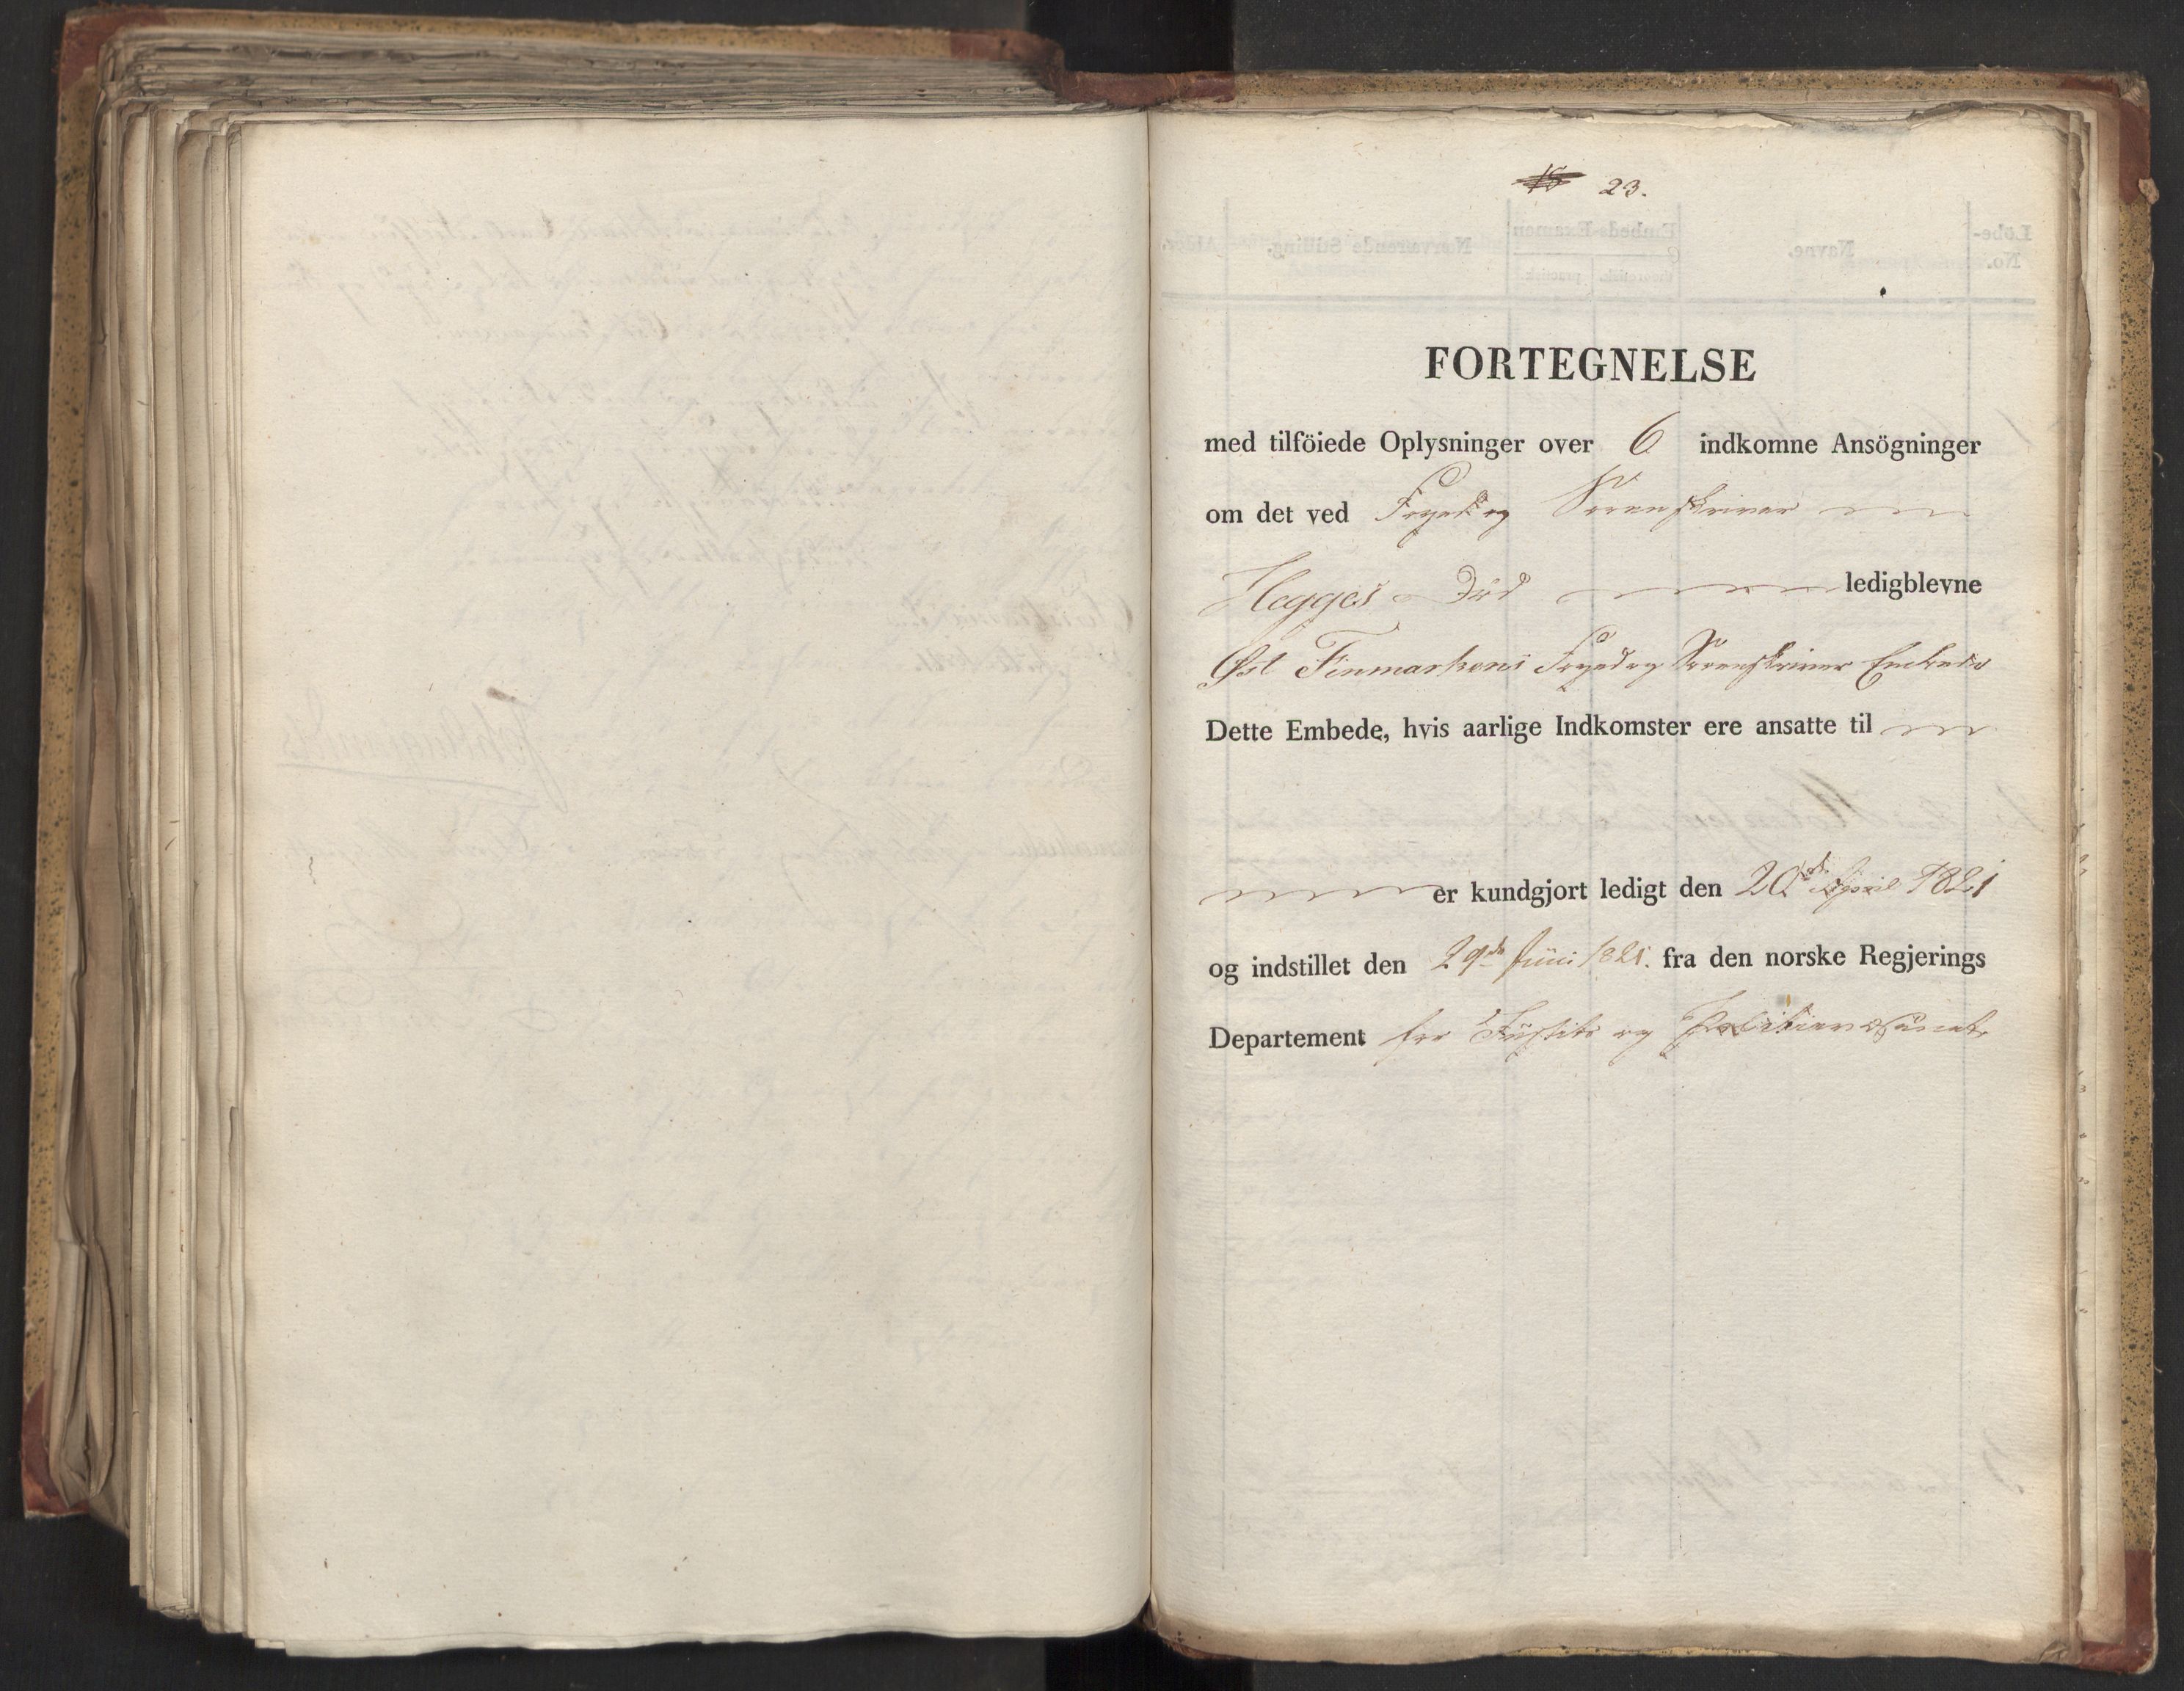 23.
FORTEGNELSE
med tilföiede Oplysninger over 6 indkomne Ansögninger
om det ved Foged og Sorenskriver
Hegges Död ledigblevne
Øst Finmarkens Foged og Sorenskriver Embede
Dette Embede, hvis aarlige Indkomster ere ansatte til
er kundgjort ledigt den 20de April 1821
og indstillet den 29de Juni 1821. fra den norske Regjerings
Departement for Justits og Politievæsenet,